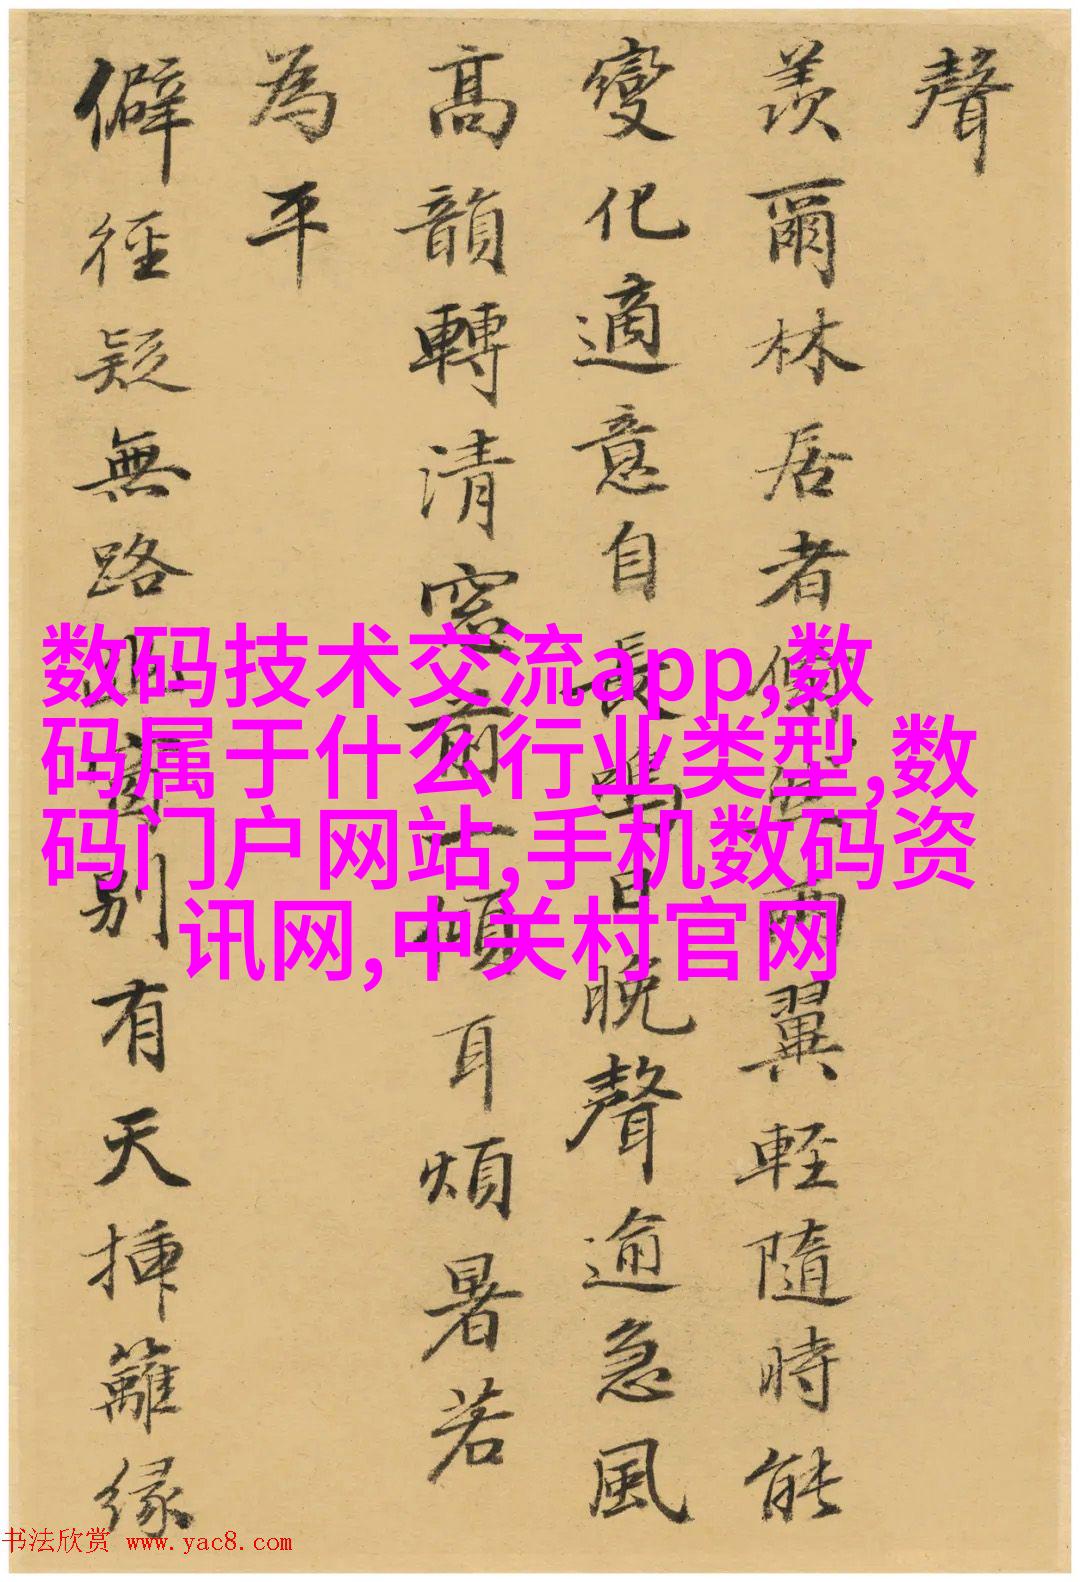 聲
羨爾林居者兩翼輕隨時能
變化適意自長鳴日晚聲逾急風
高韻轉清窓前一傾耳煩暑若
為平
僻徑疑無路幽別有天插籬緣
数码技术交流app,数
码属于什么行业类型,数
码门户网站,手机数码资
讯网,中关村官网
书法欣赏 www.yac8.com